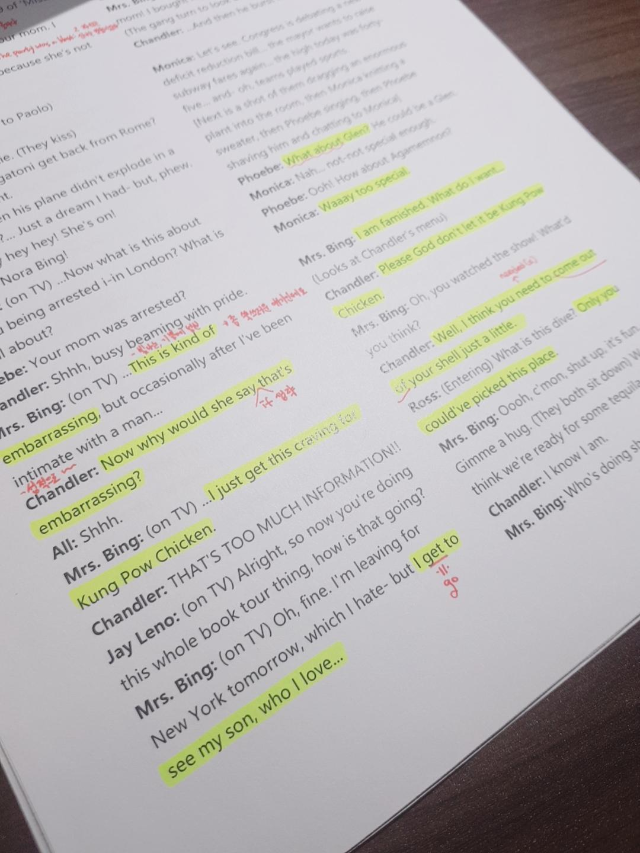 our mom. I
because she's not
to Paolo)
(They kiss)
gatoni get back from Rome?
n his plane didn't explode in a
... Just a dream I had- but, phew.
hey hey! She's on!
Nora Bing!
(on TV) ...Now what is this about
being arrested i-in London? What is
about?
Your mom was arrested?
Shhh, busy beaming with pride.
Mrs. Bing: (on TV) ...This is kind of
embarrassing, but occasionally after I've been
intimate with a man...
Chandler: Now why would she say that's
embarrassing?
All: Shhh.
Mrs. Bing: (on TV) ...I just get this craving for
Kung Pow Chicken.
Chandler: THAT'S TOO MUCH INFORMATION!!
Jay Leno: (on TV) Alright, so now you're doing
this whole book tour thing, how is that going?
Mrs. Bing: (on TV) Oh, fine. I'm leaving for
New York tomorrow, which I hate- but I get to
go
see my son, who I love...
mom! I bought
(The gang turn to look
Chandler: ...And then he
Monica: Let's see. Congress is debating a new
deficit reduction bill... the mayor wants to raise
subway fares again... the high today was forty-
five... and- oh, teams played sports.
(Next is a shot of them dragging an enormous
plant into the room, then Monica knitting a
sweater, then Phoebe singing, then Phoebe
shaving him and chatting to Monica)
Phoebe: What about Glen? He could be a Glen.
Monica: Nah... not-not special enough.
Phoebe: Ooh! How about Agamemnon?
Monica: Waaay too special.
Mrs. Bing: I am famished. What do I want...
(Looks at Chandler's menu)
Chandler: Please God don't let it be Kung Pow
Chicken.
Mrs. Bing: Oh, you watched the show! What'd
you think?
Chandler: Well, I think you need to come out
of your shell just a little.
Ross: (Entering) What is this dive? Only you
could've picked this place.
Mrs. Bing: Oooh, c'mon, shut up, it's fun.
Gimme a hug. (They both sit down)
think we're ready for some tequila
Chandler: I know I am.
Mrs. Bing: Who's doing